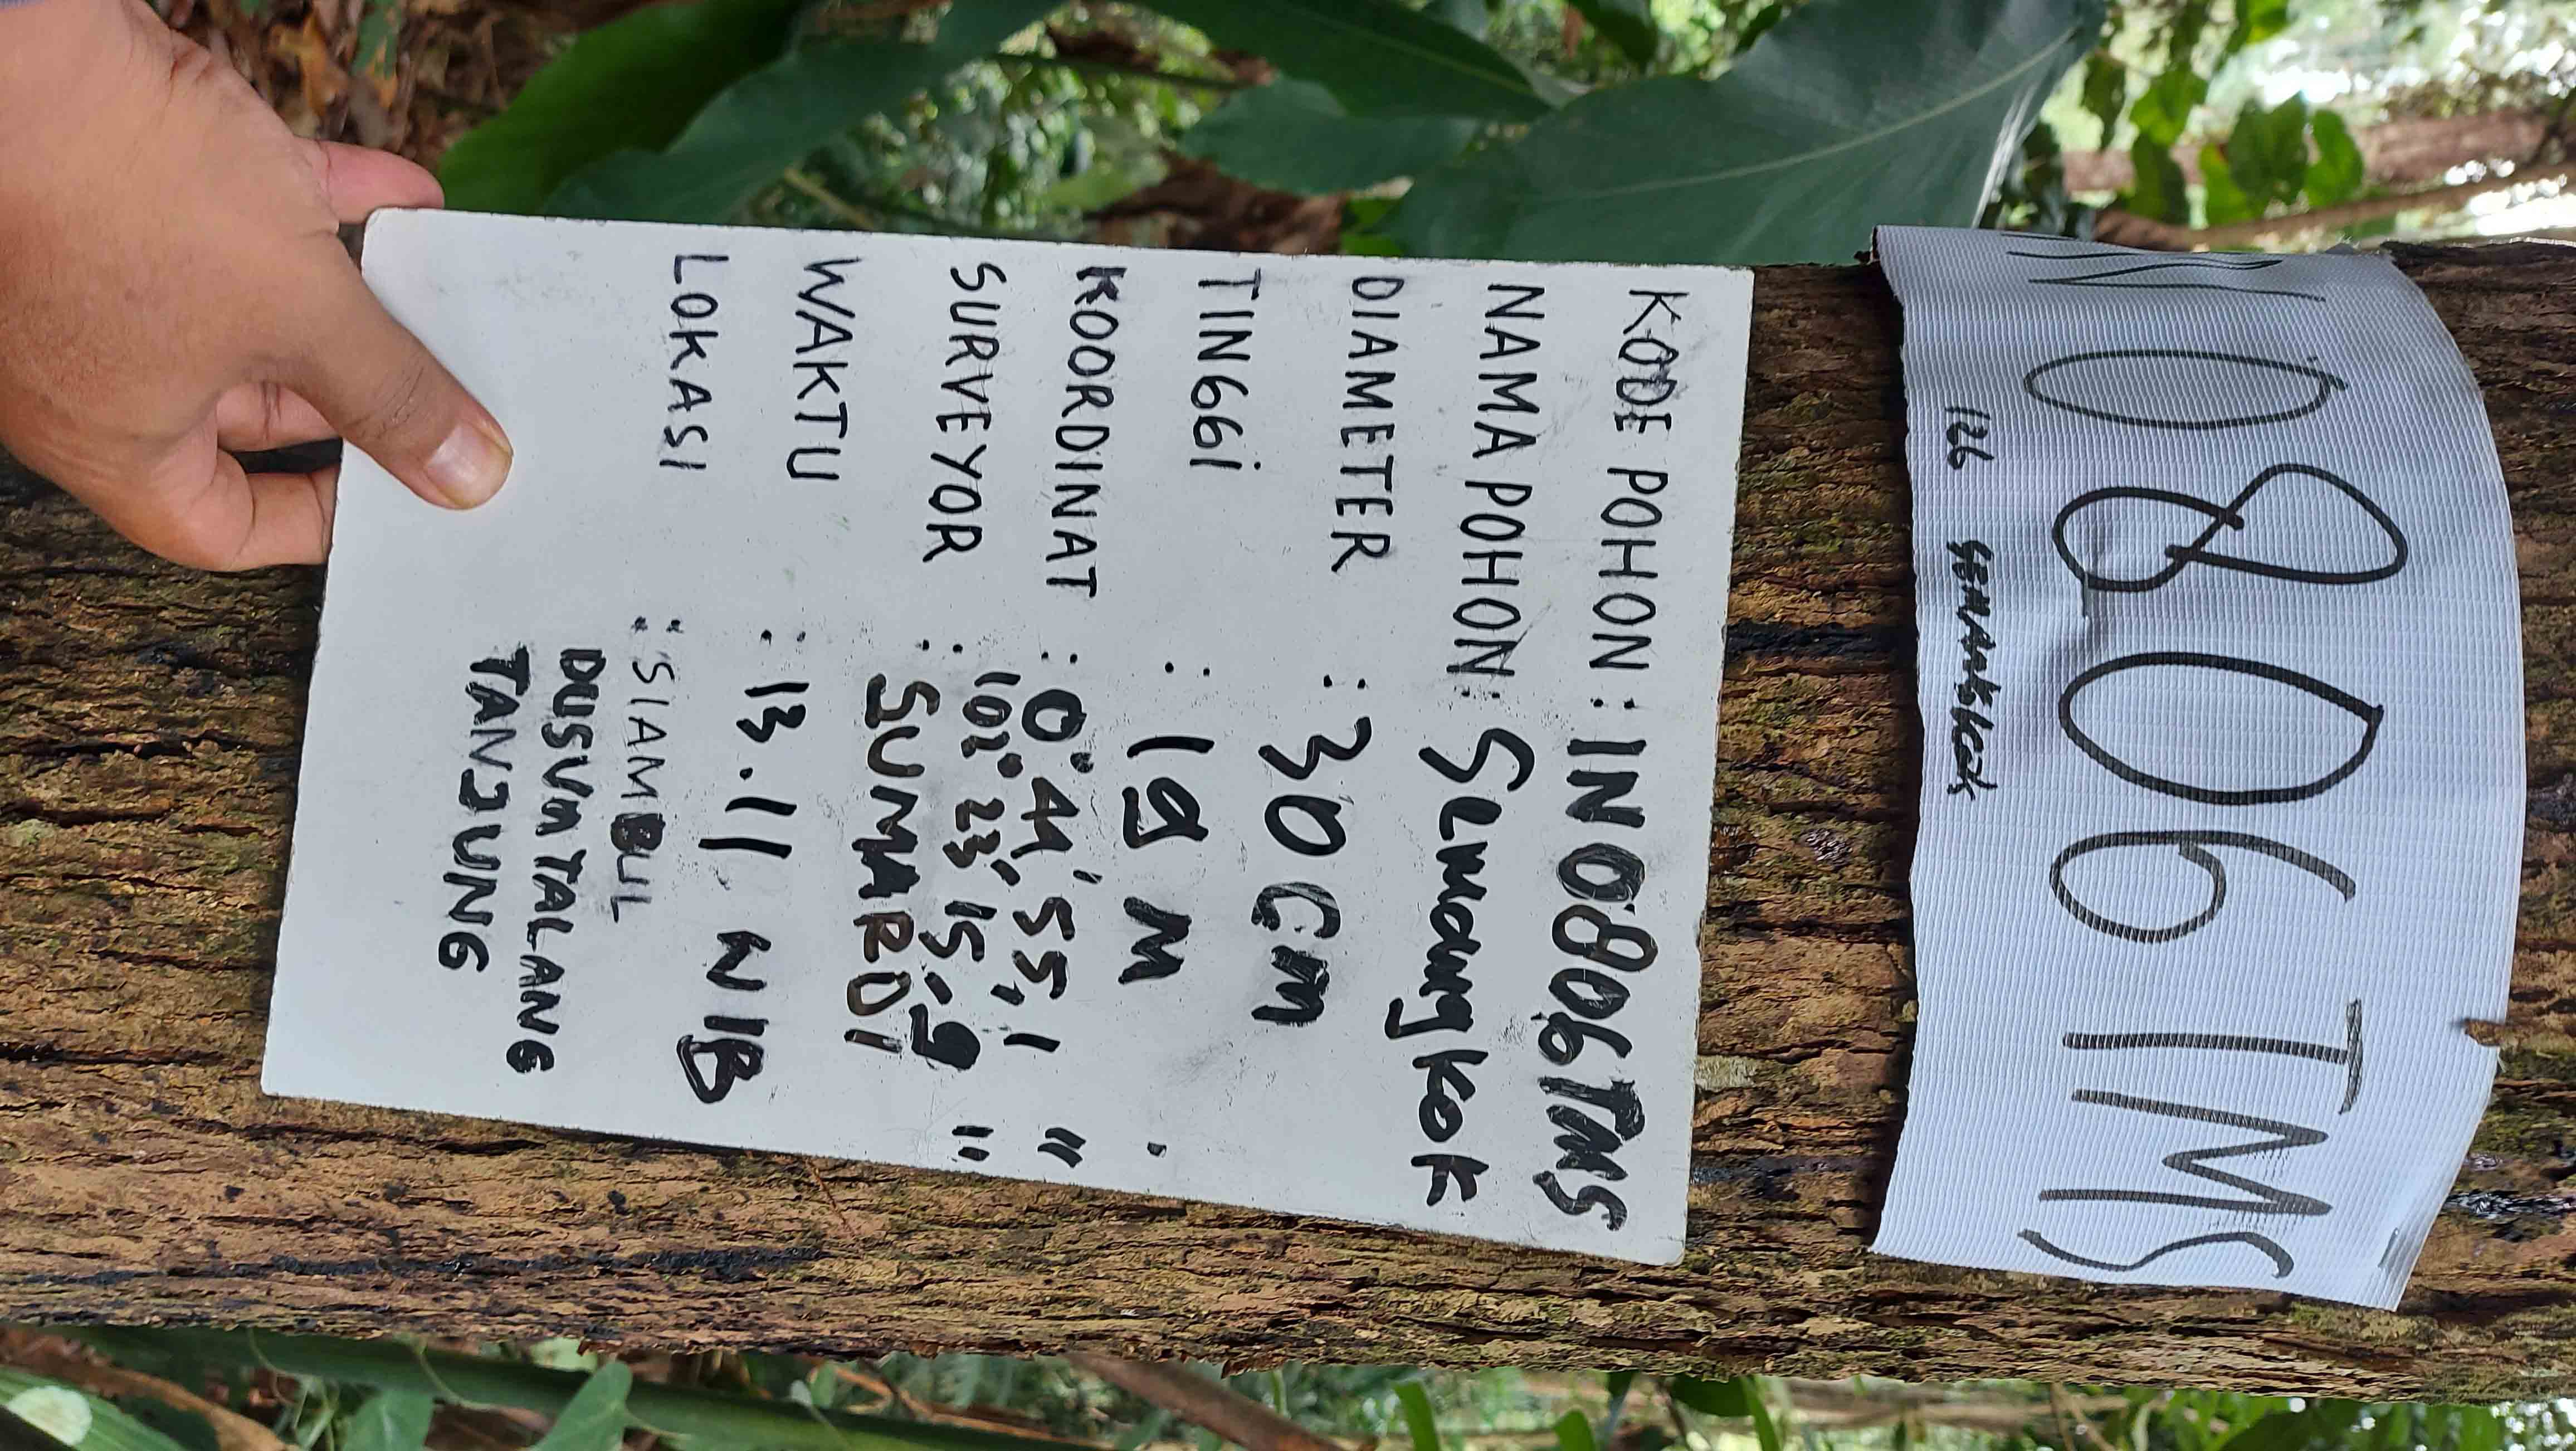 N0806TMS
126 SEMANGKOK
KODE POHON : IN0806TMS
NAMA POHON : Semangkok
DIAMETER : 30 cm
TINGGi : 19 M
KOORDINAT : 0° 44' 55,1 "
102° 23' 15,9 "
SURVEYOR : SUMARDI
WAKTU : 13.11 WIB
LOKASI : SIAMBUL
DUSUn TALANG
TANJUNG